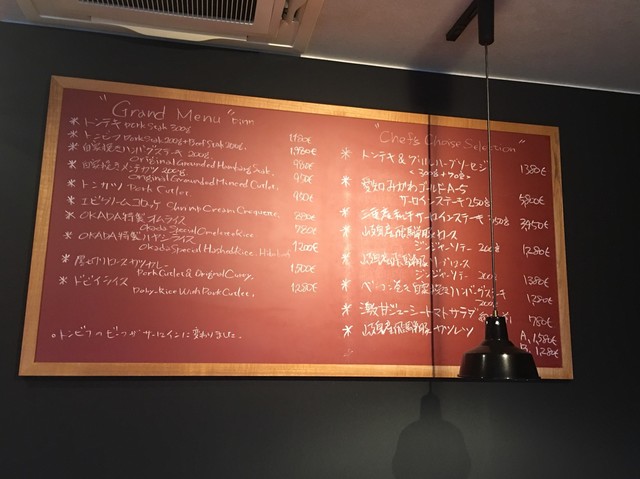 "Grand Menu"
* トンテキ Pork Steak 300g
1,180
* トンビーフ Pork Steak 200g + Beef Steak 200g.
1,980
* 自家挽きハンバーグステキ 200g
Original Grounded Hamburg Steak.
980
* 自家挽きメンチカツ 200g
Original Grounded Minced Cutlet.
950
* トンカツ Pork Cutlet.
950
* エビクリームコロッケ Shrimp Cream Croquette.
880
* OKADA特製オムライス
Okada Special Omelete Rice
780
* OKADA特製ハヤシライス
Okada Special Hashed Rice.
1200
* 厚切りロースカツカレー
Pork Cutlet & Original Curry.
1,500
* ドビーライス
Doby-Rice With Pork Cutlet.
1,280
トンビーフのビーフがサーロインに変わりました。
"Chef's Choise Selection"
* トンテキ & グリルハーブソーセージ
<300g + 70g>
1380
* 愛知みかわゴールドA-5
サーロインステーキ 250g
5800
* サーロインステーキ 250g
3950
* 岐阜産飛騨豚ロース
ジンジャーソテー 200g
1280
* 岐阜産飛騨豚
ジンジャーソテー 200g
1380
* ベーコン巻き自家挽きハンバーグステキ
1280
* 激甘ジューシートマトサラダ
780
* 岐阜産飛騨豚カツレツ
A. 1,580
B. 1,280